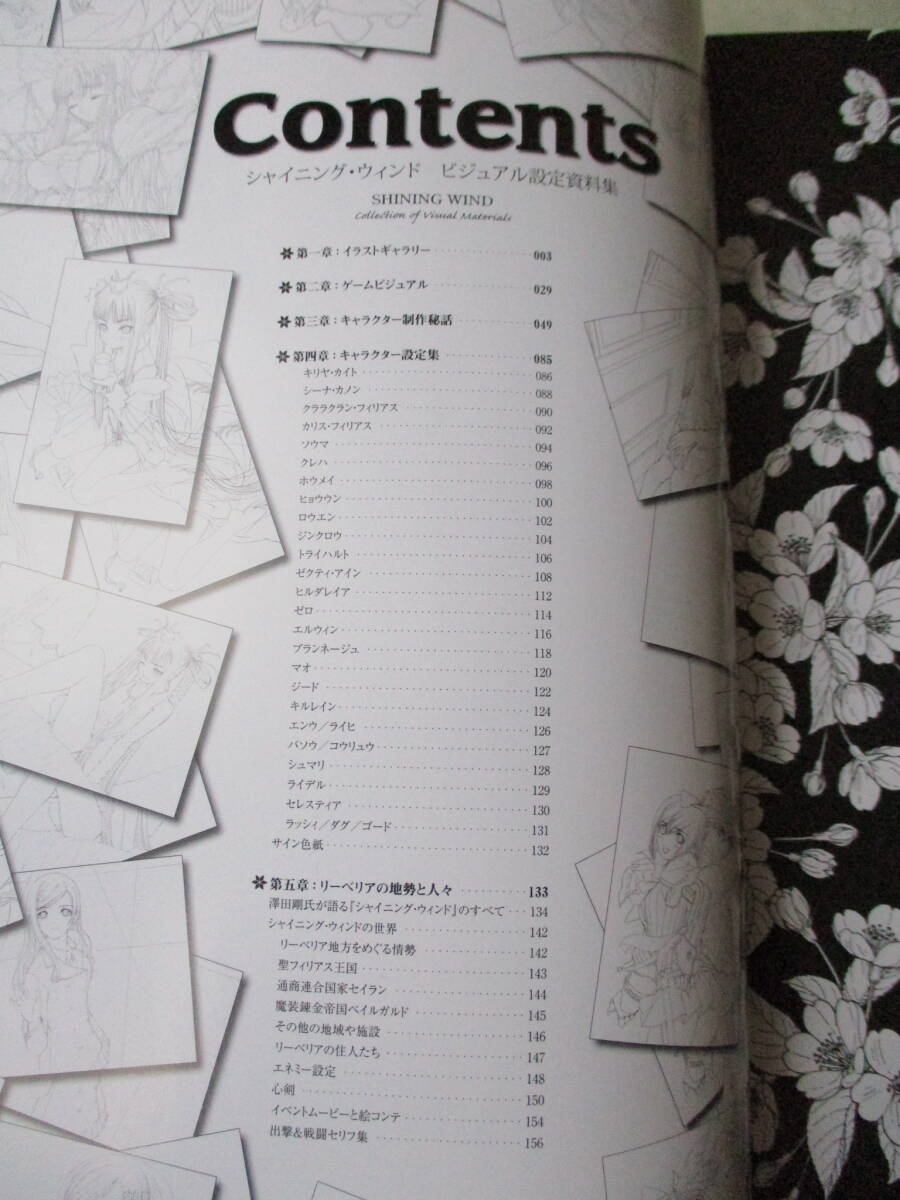 Contents
シャイニング・ウィンド ビジュアル設定資料集
SHINING WIND
Collection of Visual Materials
第一章：イラストギャラリー 003
第二章：ゲームビジュアル 029
第三章：キャラクター制作秘話 049
第四章：キャラクター設定集 085
キリヤ・カイト 086
シーナ・カノン 088
クララクラン・フィリアス 090
カリス・フィリアス 092
ソウマ 094
クレハ 096
ホウメイ 098
ヒョウウン 100
ロウエン 102
ジンクロウ 104
トライハルト 106
ゼクティ・アイン 108
ヒルダレイア 112
ゼロ 114
エルウィン 116
ブランネージュ 118
マオ 120
ジード 122
キルレイン 124
エンウ／ライヒ 126
バソウ／コウリュウ 127
シュマリ 128
ライデル 129
セレスティア 130
ラッシィ／ダグ／ゴード 131
サイン色紙 132
第五章：リーベリアの地勢と人々 133
澤田剛氏が語る『シャイニング・ウィンド』のすべて 134
シャイニング・ウィンドの世界 142
リーベリア地方をめぐる情勢 142
聖フィリアス王国 143
通商連合国家セイラン 144
魔装錬金帝国ベイルガルド 145
その他の地域や施設 146
リーベリアの住人たち 147
エネミー設定 148
心剣 150
イベントムービーと絵コンテ 154
出撃&戦闘セリフ集 156